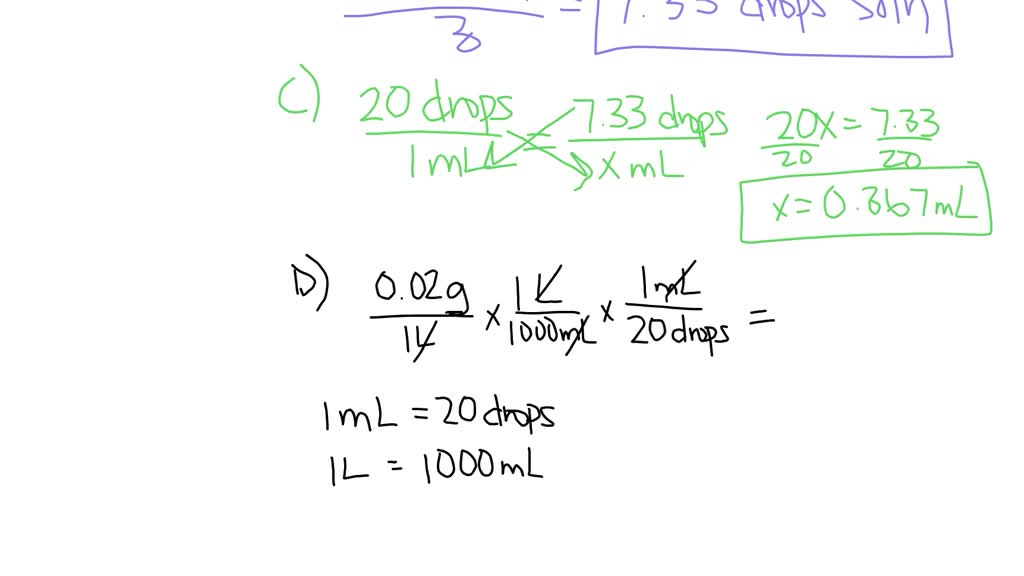 3 = 7.33 drops soln
C) 20 drops / 1 mL = 7.33 drops / x mL
20x = 7.33
20 20
x = 0.367 mL
D) 0.02g / 1L × 1L / 1000mL × 1mL / 20 drops =
1 mL = 20 drops
1L = 1000 mL